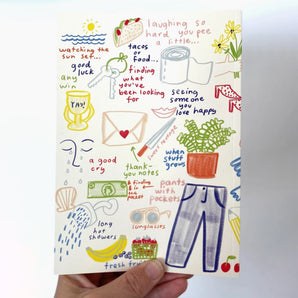 laughing so
hard you pee
a little...
watching the
sun set...
tacos
or food...
good
luck
finding
what
you've
been looking
for
any
win
seeing
someone
you
love happy
YAY!
a good
cry
thank-
you notes
when
stuff
grows
finding
$ in a
pants with
pockets
sunglasses
long
hot
showers
fresh fruit